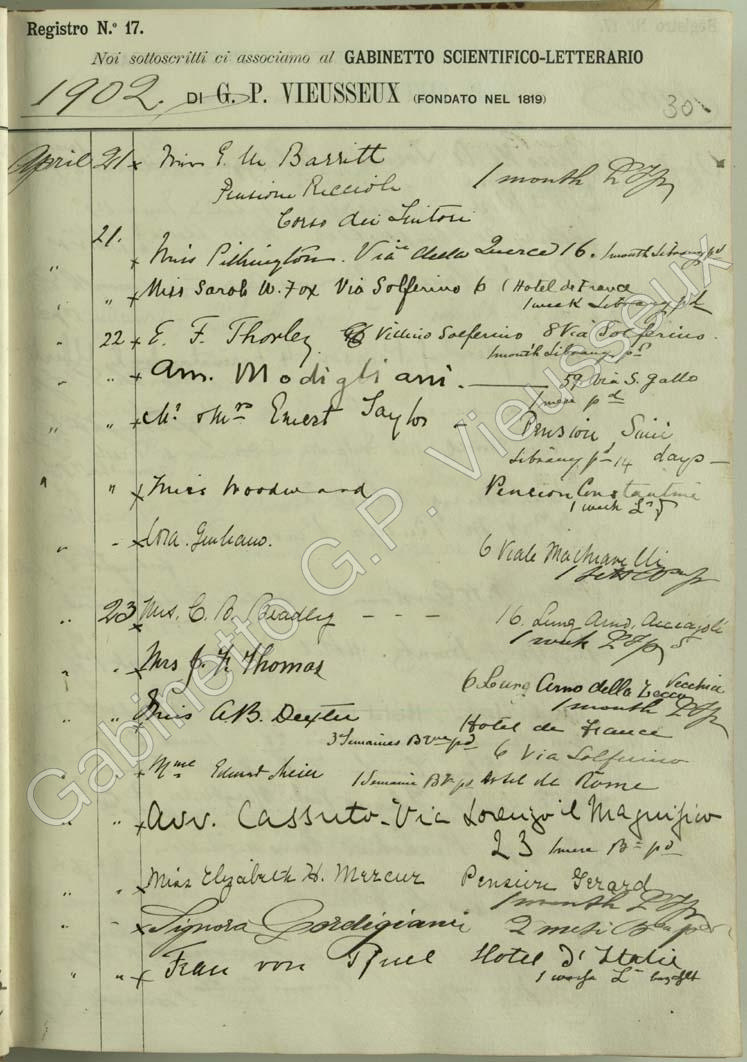 Registro N.º 17.
Noi sottoscritti ci associamo al GABINETTO SCIENTIFICO-LETTERARIO
1902. DI G. P. VIEUSSEUX (FONDATO NEL 1819) 30
April 21 x Miss E. M Barritt
Pensione Riccioli 1 month
Corso dei Tintori
21.
" x Miss Pilkington. Via della Querce 16. 1 month Library pd
" " x Miss Sarah W. Fox Via Solferino 6 (Hotel de France
1 week Library pd
" 22 x E. F. Thorley Villino Solferino 8 Via Solferino.
1 month Library pd
" " x Am. Modigliani. 59 Via S. Gallo
1 mese pd
" " x Mr & Mrs Ernest Taylor - Pension Simi
Library pd 14 days -
" x Miss Woodward Pension Constantine
1 week
" - x Giuliano. 6 Viale Machiavelli
" 23 x Mrs. C. B. Bradley - - - 16. Lung Arno. Acciajoli
1 week
" " x Mrs J. F. Thomas
6 Lung Arno della Zecca Vecchia
1 month
" " x Miss A.B. Dexter Hotel de France
3 Semaines pd 6 Via Solferino
" " x Mme Edouard Meier 1 Semaine pd Hotel de Rome
" " x Avv. Cassuto - Via Lorenzo il Magnifico
23 1 mese pd
" " x Miss Elizabeth H. Mercur Pension Gerard
1 month
" - x Signora Gordigiani 2 mesi
" " x Frau von Hotel d'Italie
Gabinetto G.P. Vieusseux